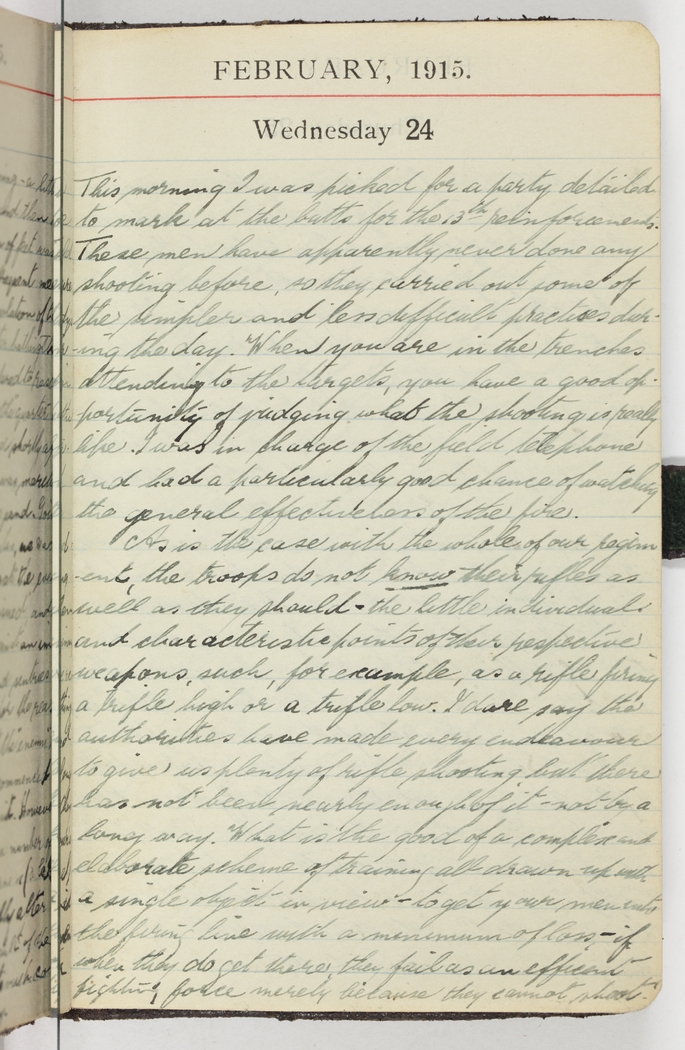 FEBRUARY, 1915.
Wednesday 24
This morning I was picked for a party detailed
to mark at the butts for the 13th reinforcements.
These men have apparently never done any
shooting before, so they carried out some of
the simpler and less difficult practices dur-
-ing the day. When you are in the trenches
attending to the targets, you have a good op-
portunity of judging what the shooting is really
like. I was in charge of the field telephone
and had a particularly good chance of watching
the general effectiveness of the fire.
As is the case with the whole of our regim
-ent, the troops do not know their rifles as
well as they should - the little individual
and characteristic points of their respective
weapons, such, for example, as a rifle firing
a trifle high or a trifle low. I dare say the
authorities have made every endeavour
to give us plenty of rifle shooting but there
has not been nearly enough of it - not by a
long way. What is the good of a complex and
elaborate scheme of training all drawn up with
a single object in view - to get your men into
the firing line with a minimum of loss - if
when they do get there, they fail as an efficient
fighting force merely because they cannot shoot.